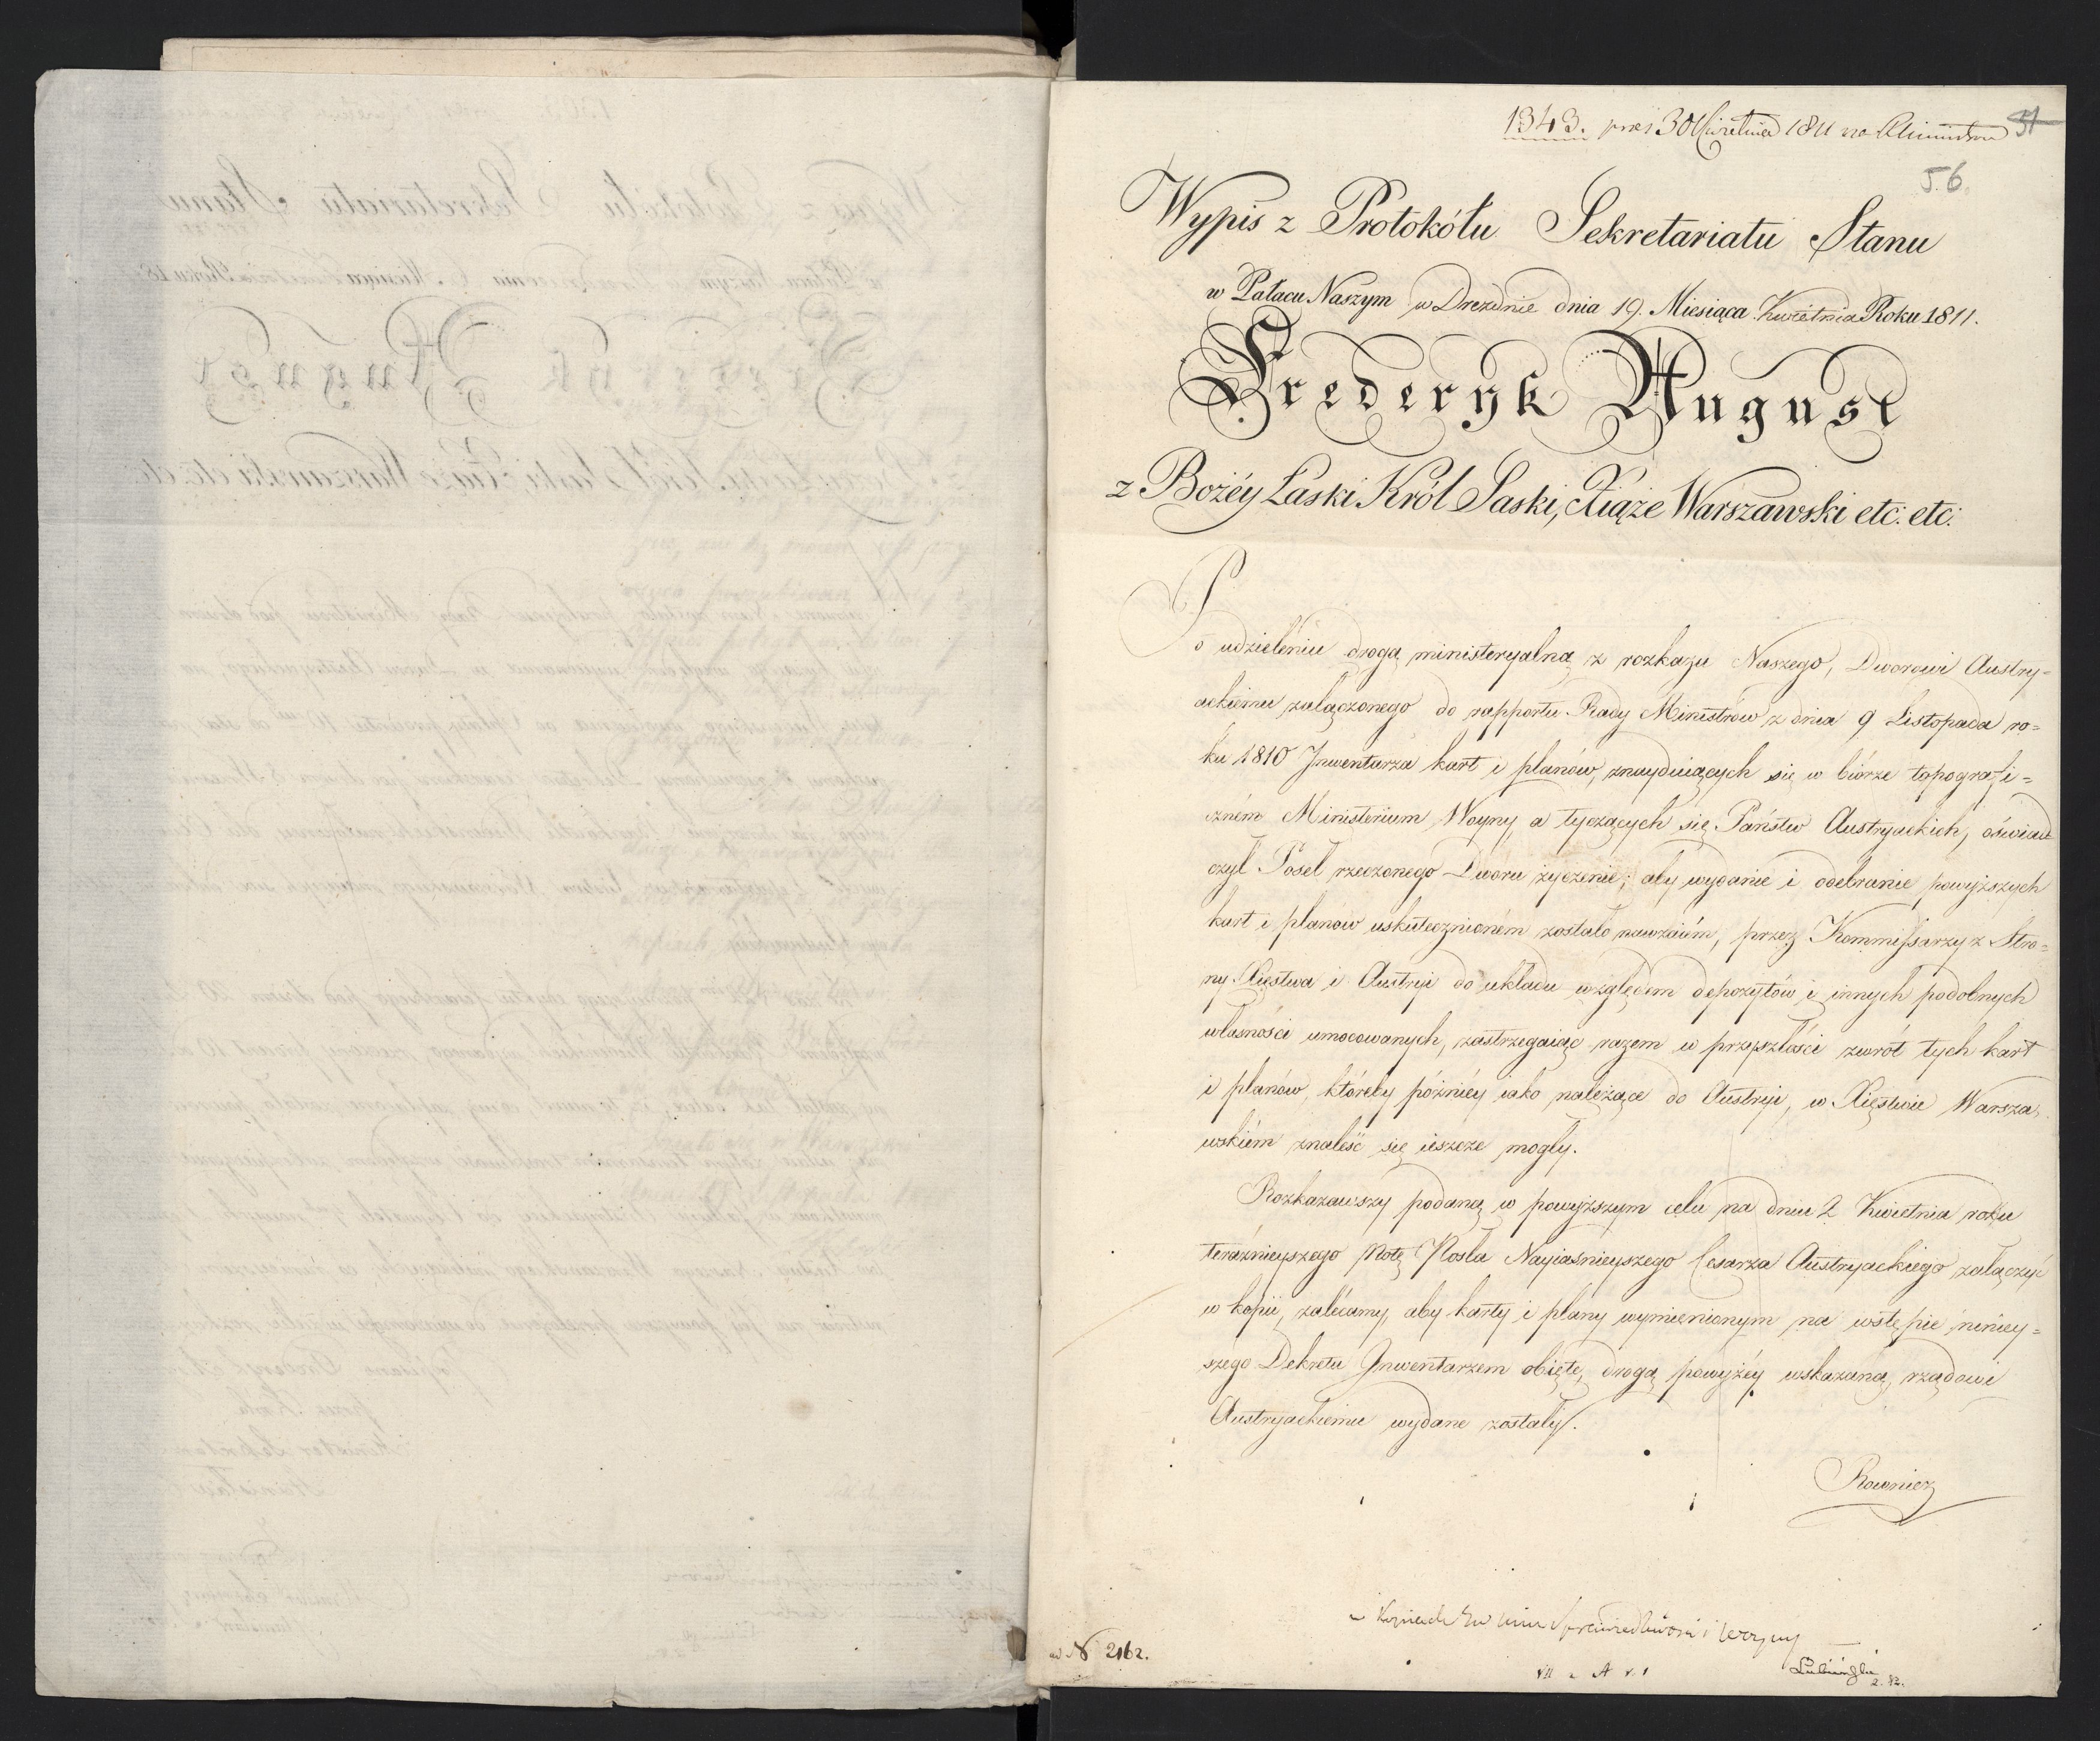 1343. pres 30 Kwietnia 1811 na Minist 51
56.
Wypis z Protokółu Sekretariatu Stanu
w Pałacu Naszym w Dreznie dnia 19. Miesiąca Kwietnia Roku 1811.
Frederyk August
z Bożéy Łaski Król Saski, Xiąże Warszawski etc: etc:
Po udzieleniu drogą ministeryalną z rozkazu Naszego, Dworowi Austry=
ackiemu załączonego do rapportu Rady Ministrów z dnia 9 Listopada ro=
ku 1810 Jnwentarza kart i planów, znayduiących się w biórze topografi=
czném Ministerium Woyny, a tyczących się Państw Austryackich, oświad
czył Poseł rzeczonego Dworu życzenie; aby wydanie i odebranie powyższych
kart i planów uskutecznioném zostało nawzaiém, przez Kommissarzy z Stro=
ny Xięstwa i Austryi do układu względem depozytów i innych podobnych
własności umocowanych, zastrzegaiąc razem w przyszłości zwrót tych kart
i planów, któreby późniéy iako należące do Austryi, w Xięstwie Warsza,
wskiém znaleść się ieszcze mogły.
Rozkazawszy podaną w powyższym celu na dniu 2 Kwietnia roku
teraźnieyszego Notę Posła Nayiaśnieyszego Cesarza Austryackiego załączyć
w kopii, zalécamy, aby karty i plany wymienionym na wstępie niniey=
szego Dekretu Jnwentarzem obięte, drogą powyżéy wskazaną, rządowi
Austryackiemu wydane zostały.
Rowniez
w Kopiach Sprawiedliwosci i Woyny
ad N 2162.
VII